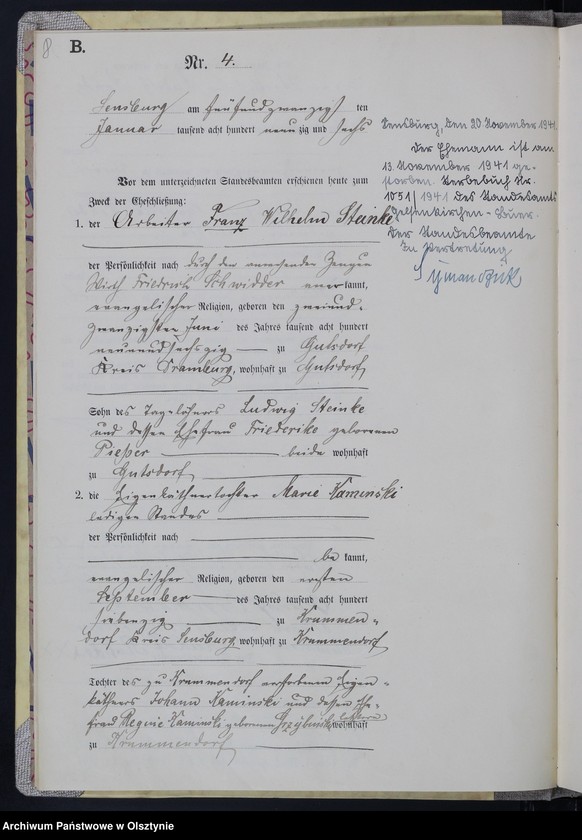 8
B.
Nr. 4.
Sensburg am fünfundzwanzigsten
Januar tausend acht hundert neunzig und sechs
Vor dem unterzeichneten Standesbeamten erschienen heute zum
Zweck der Eheschließung:
1. der Arbeiter Franz Wilhelm Steinke
der Persönlichkeit nach durch den anwesenden Zeugen
Wirth Friedrich Schwidder anerkannt,
evangelischer Religion, geboren den zweiund-
zwanzigsten Juni des Jahres tausend acht hundert
neunundsechszig zu Gutsdorf
Kreis Dramburg, wohnhaft zu Gutsdorf
Sohn des Tagelöhners Ludwig Steinke
und dessen Ehefrau Friederike geborenen
Pieper beide wohnhaft
zu Gutsdorf
2. die Eigenkäthnertochter Marie Kaminski
ledigen Standes
der Persönlichkeit nach
bekannt,
evangelischer Religion, geboren den ersten
September des Jahres tausend acht hundert
siebenzig zu Krummen-
dorf Kreis Sensburg, wohnhaft zu Krummendorf
Tochter des zu Krummendorf verstorbenen Eigen-
käthners Johann Kaminski und dessen Ehe-
frau Regine Kaminski geborenen letztere wohnhaft
zu Krummendorf
Sensburg, den 20 November 1941.
Der Ehemann ist am
13. November 1941 ge-
storben. Sterbebuch Nr.
1051/1941 des Standesamts
Gelsenkirchen-Buer.
Der Standesbeamte
In Vertretung
Archiwum Państwowe w Olsztynie